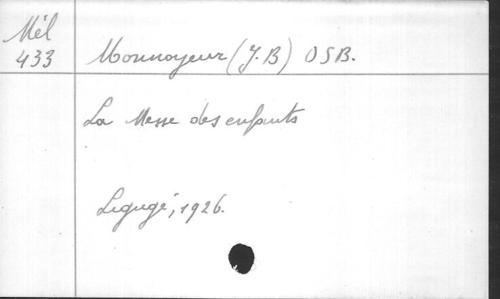 Mél
433
Monnoyeur (J.B) OSB.
La Messe des enfants
Ligugé, 1926.